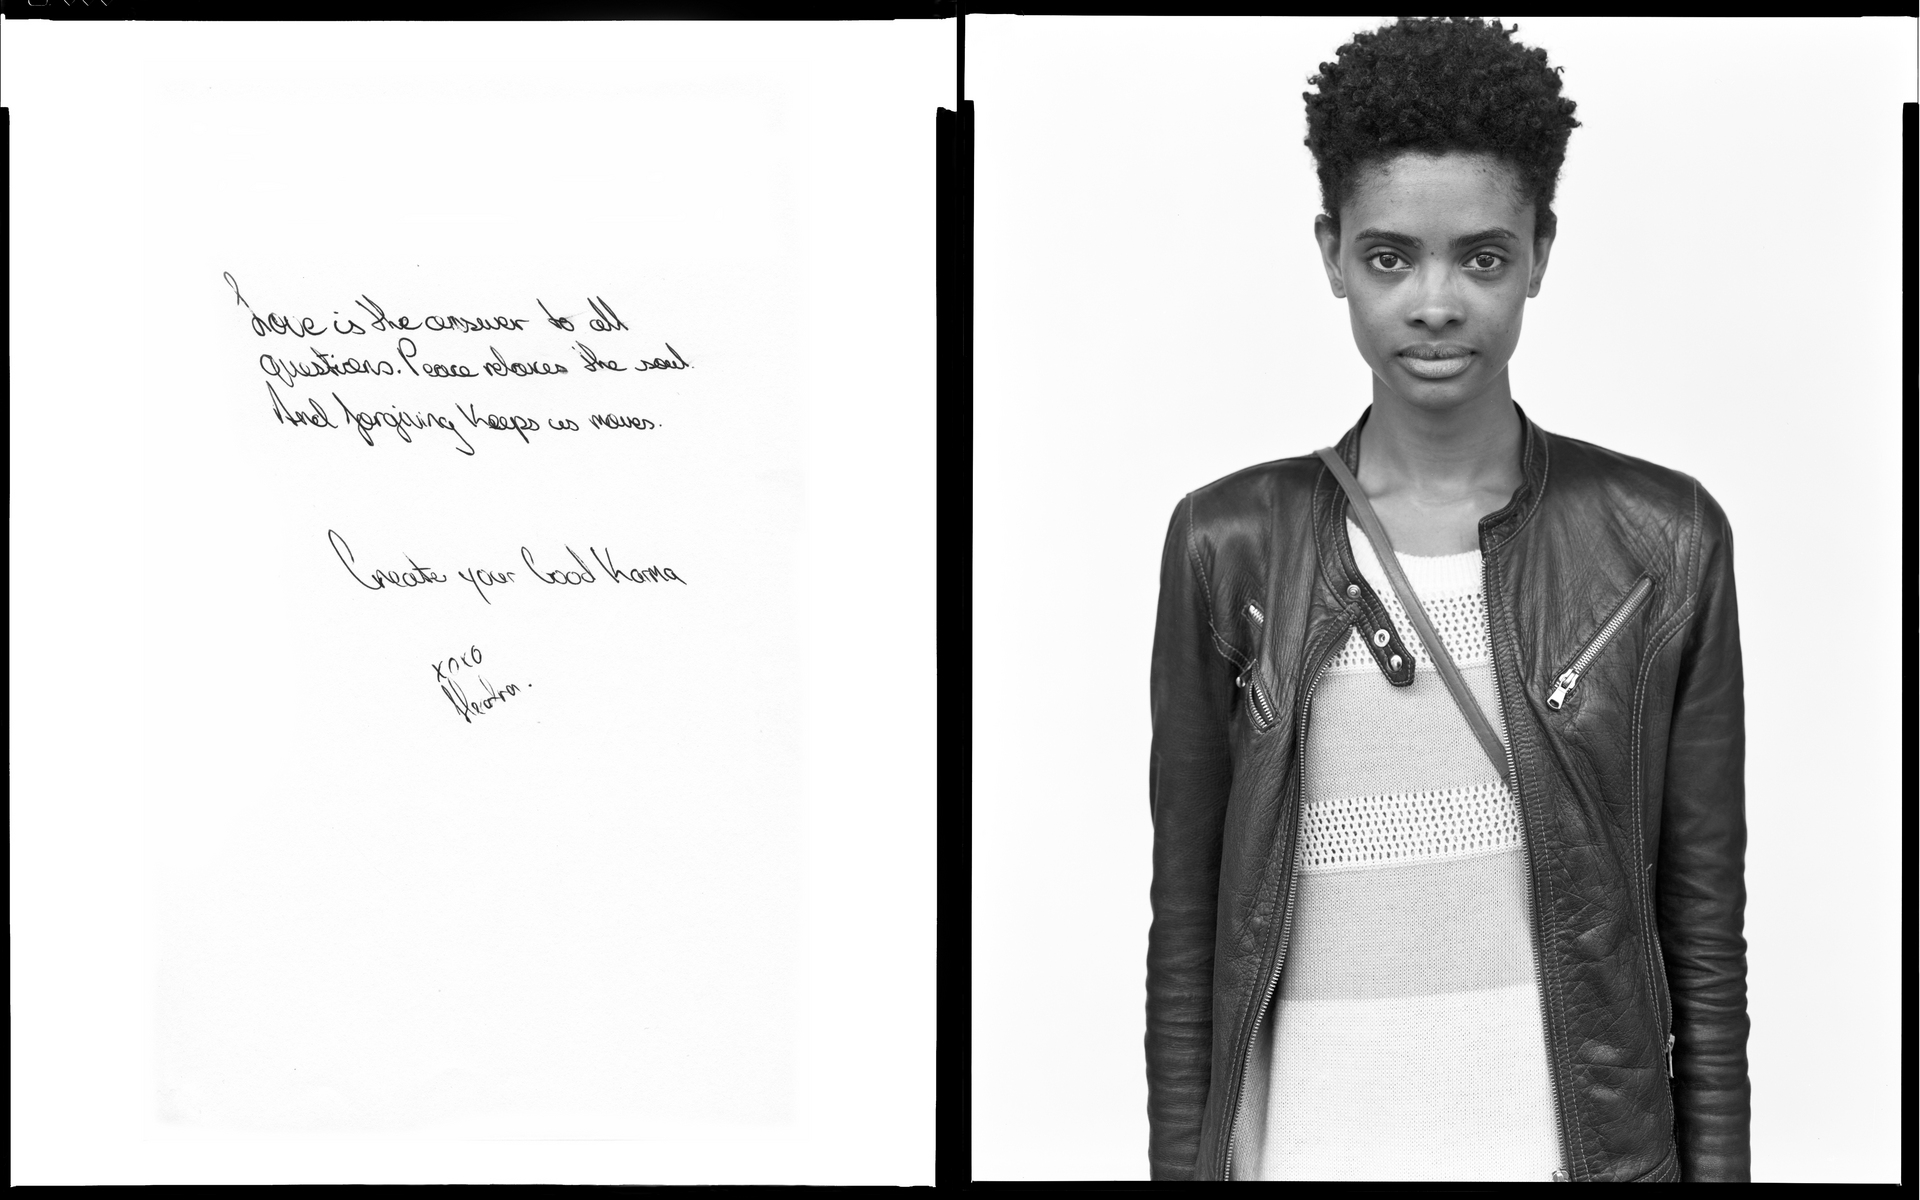 Love is the answer to all
questions. Peace relaxes the soul.
And forgiving keeps us moves.
Create your Good Karma
xoxo